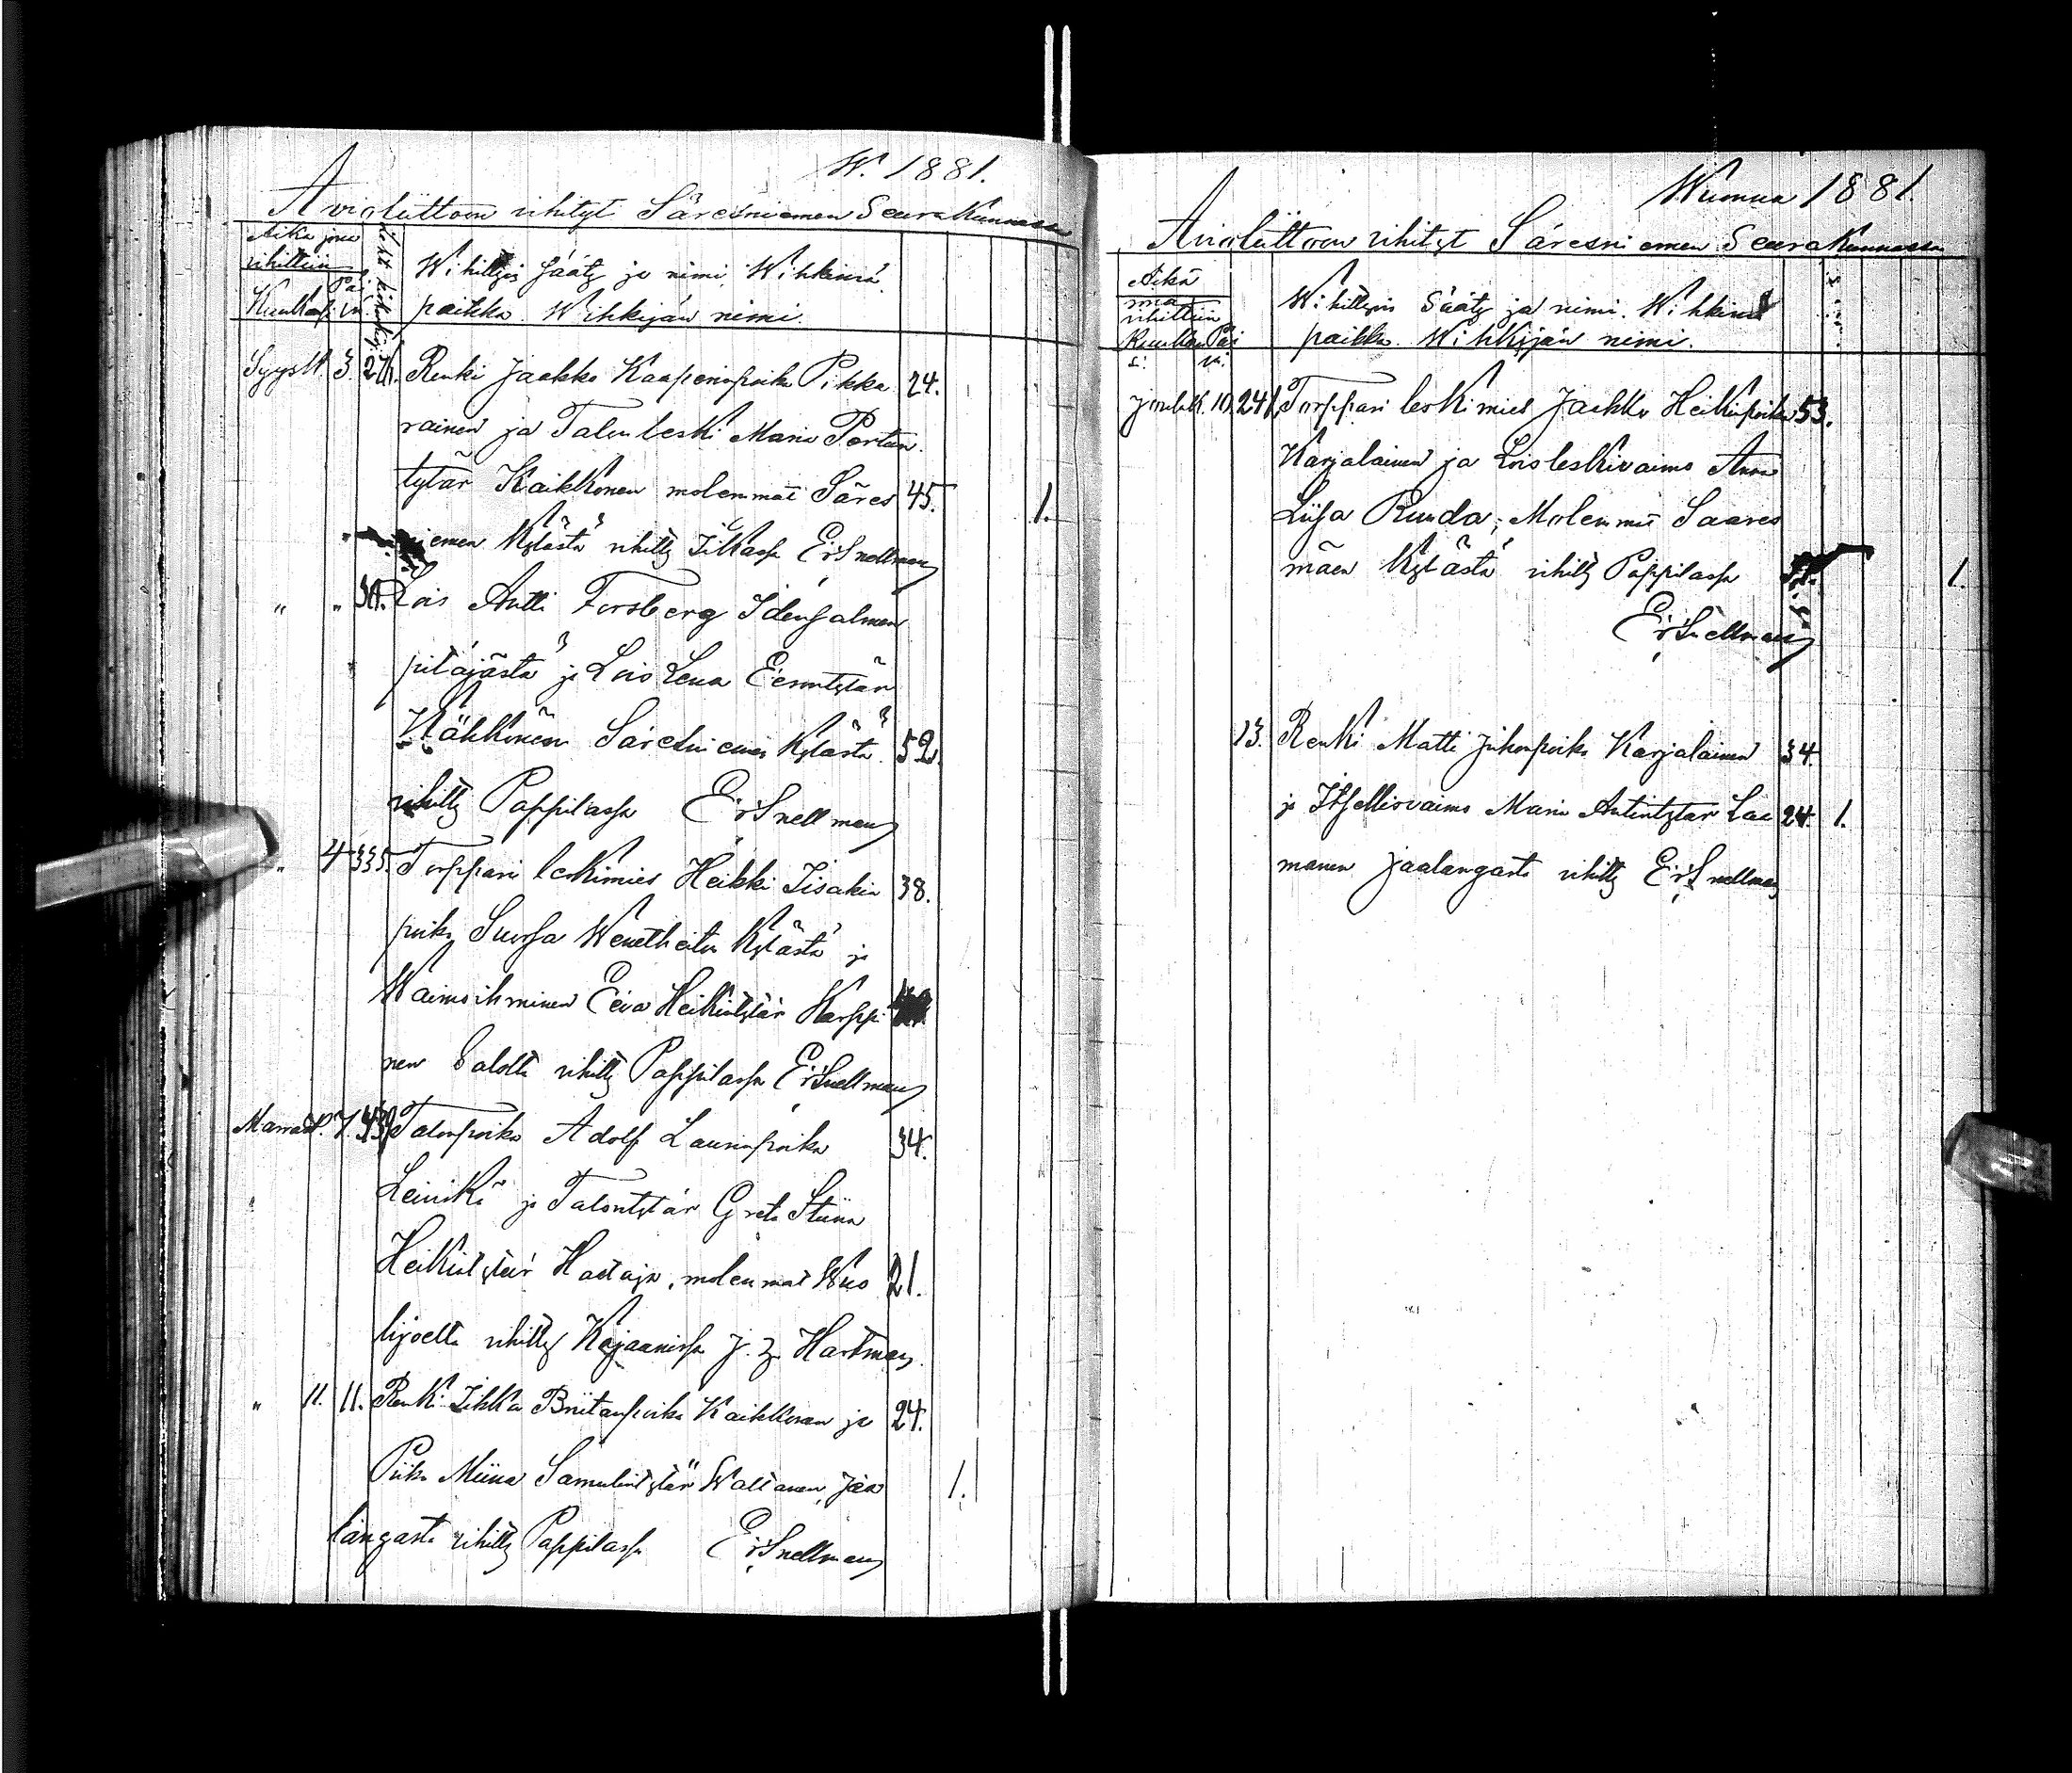 W. 1881.
Avioliittoon vihityt Säresniemen Seurakunnassa
Aika jona
vihittiin
Wihittyjs Sääty ja nimi. Wihkimä
Kuukasi
paikka. Wihkijän nimi.
Syysk. 3. Renki Jaakko Kaaperinpoika Pikka 24.
rainen ja Talon leski Maria Pertun
tytär Kaikkonen molemmat Säres 45. 1.
niemen Kylästä vihitty ErSnellman
" " Lois Antti Forsberg Idensalmen
pitäjästä ja Lois Lena Eerontytär
Kähkönen Säresniemen Kylästä 52.
vihitty Pappilassa ErSnellman
" 4 335. Torppari leskimies Heikki Iisakin 38.
poika Suorsa Wenetheiton Kylästä ja
Waimoihminen Eeva Heikintytär Karppi
nen vihitty Pappilassa ErSnellman
Marrask. 7. Talonpoika Adolf Laurinpoika 34.
" ja Talontytär Greta Stiina
Heikintytär Hartaja, molemmat Wuo 21.
lijoelta vihitty Kajaanissa J. Hartman
" 11. 11. Renki Iikka Priitanpoika Kaikkonen ja 24.
Piika Miina Samulintytär Waltanen, Jaa 1.
langasta vihitty Pappilassa ErSnellman
Wuonna 1881.
Avioliittoon vihityt Säresniemen Seurakunnassa
Aika
vihittiin
Wihittyjs Sääty ja nimi. Wihkimä
Kuukau Päi
si vä
paikka. Wihkijän nimi.
Jouluk. 10. 241. Torppari leskimies Jaakko Heikinpoika 53.
Karjalainen ja Loisleskivaimo Anna
Liisa Runda, Molemmat Saares
mäen Kylästä vihitty Pappilassa 1.
ErSnellman
13. Renki Matti Juhonpoika Karjalainen 34.
ja Itsellisvaimo Maria Antintytär Lai 24. 1.
manen Jaalangasta vihitty ErSnellman